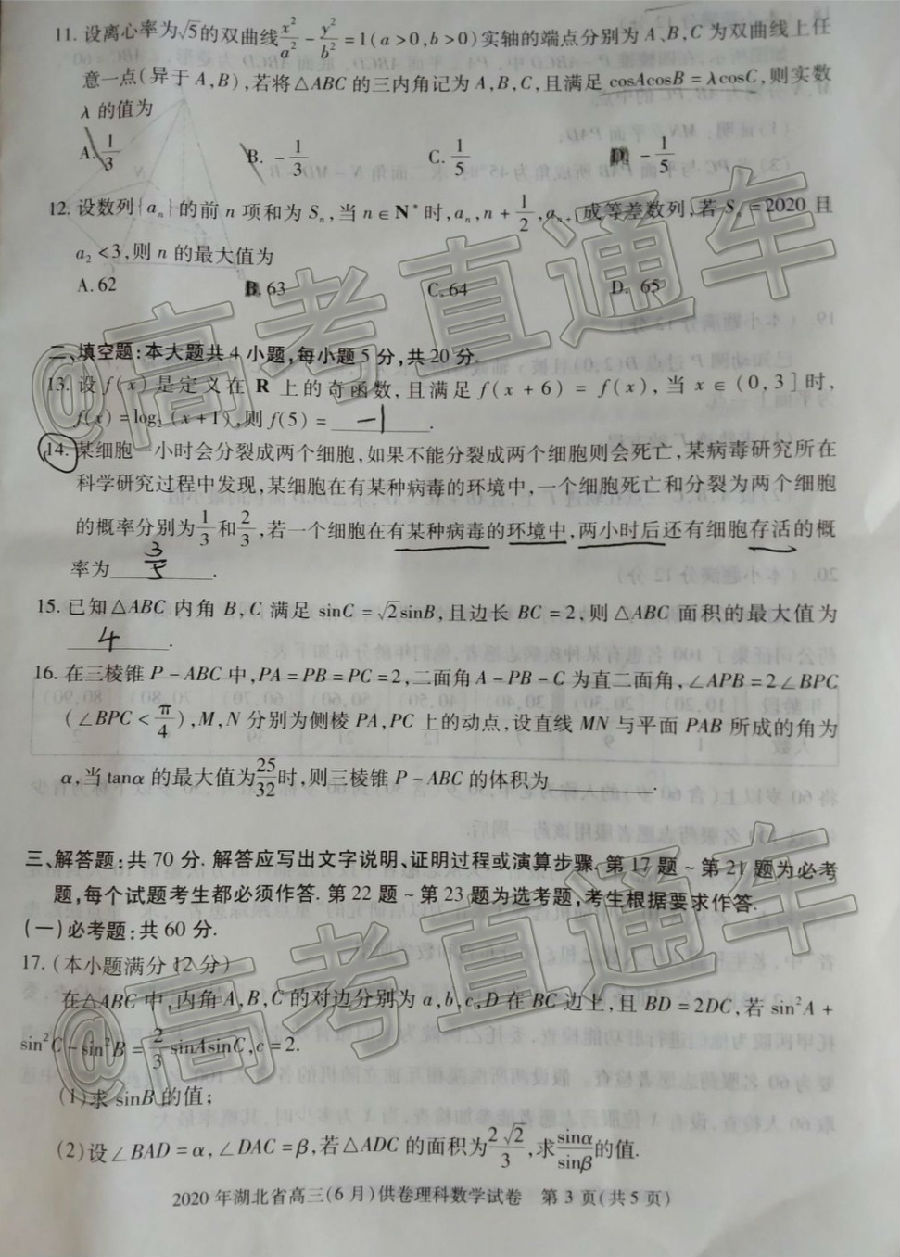 11. 设离心率为√5的双曲线x²/a² - y²/b² = 1(a>0,b>0)实轴的端点分别为A、B,C为双曲线上任
意一点(异于A,B),若将△ABC的三内角记为A,B,C,且满足cosAcosB = λcosC,则实数
λ的值为
A. 1/3 B. - 1/3 C. 1/5 D. - 1/5
12. 设数列{aₙ}的前n项和为Sₙ,当n∈N*时,aₙ, n + 1/2, 成等差数列,若Sₙ = 2020且
a₂<3,则n的最大值为
A. 62 B. 63 C. 64 D. 65
二、填空题:本大题共4小题,每小题5分,共20分.
13. 设f(x)是定义在R上的奇函数,且满足f(x+6) = f(x),当x∈(0,3]时,
f(x) = log (x+1),则f(5) = -1.
14. 某细胞一小时会分裂成两个细胞,如果不能分裂成两个细胞则会死亡,某病毒研究所在
科学研究过程中发现,在有某种病毒的环境中,一个细胞死亡和分裂为两个细胞
的概率分别为1/3和2/3,若一个细胞在有某种病毒的环境中,两小时后还有细胞存活的概
率为 .
15. 已知△ABC内角B,C满足sinC = √2sinB,且边长BC = 2,则△ABC面积的最大值为
4.
16. 在三棱锥P-ABC中,PA = PB = PC = 2,二面角A-PB-C为直二面角,∠APB = 2∠BPC
(∠BPC < π/4),M,N分别为侧棱PA,PC上的动点,设直线MN与平面PAB所成的角为
α,当tanα的最大值为25/32时,则三棱锥P-ABC的体积为 .
三、解答题:共70分. 解答应写出文字说明、证明过程或演算步骤. 第17题~第21题为必考
题,每个试题考生都必须作答. 第22题~第23题为选考题,考生根据要求作答.
(一)必考题:共60分.
17. (本小题满分12分)
在△ABC中,内角A,B,C的对边分别为a,b,c,D在BC边上,且BD = 2DC,若sin²A +
sin²C - sin²B = 2/3 sinAsinC,c = 2.
(1)求sinB的值;
(2)设∠BAD = α,∠DAC = β,若△ADC的面积为2√2/3,求sinα/sinβ的值.
2020年湖北省高三(6月)供卷理科数学试卷 第3页(共5页)
@高考直通车
@高考直通车